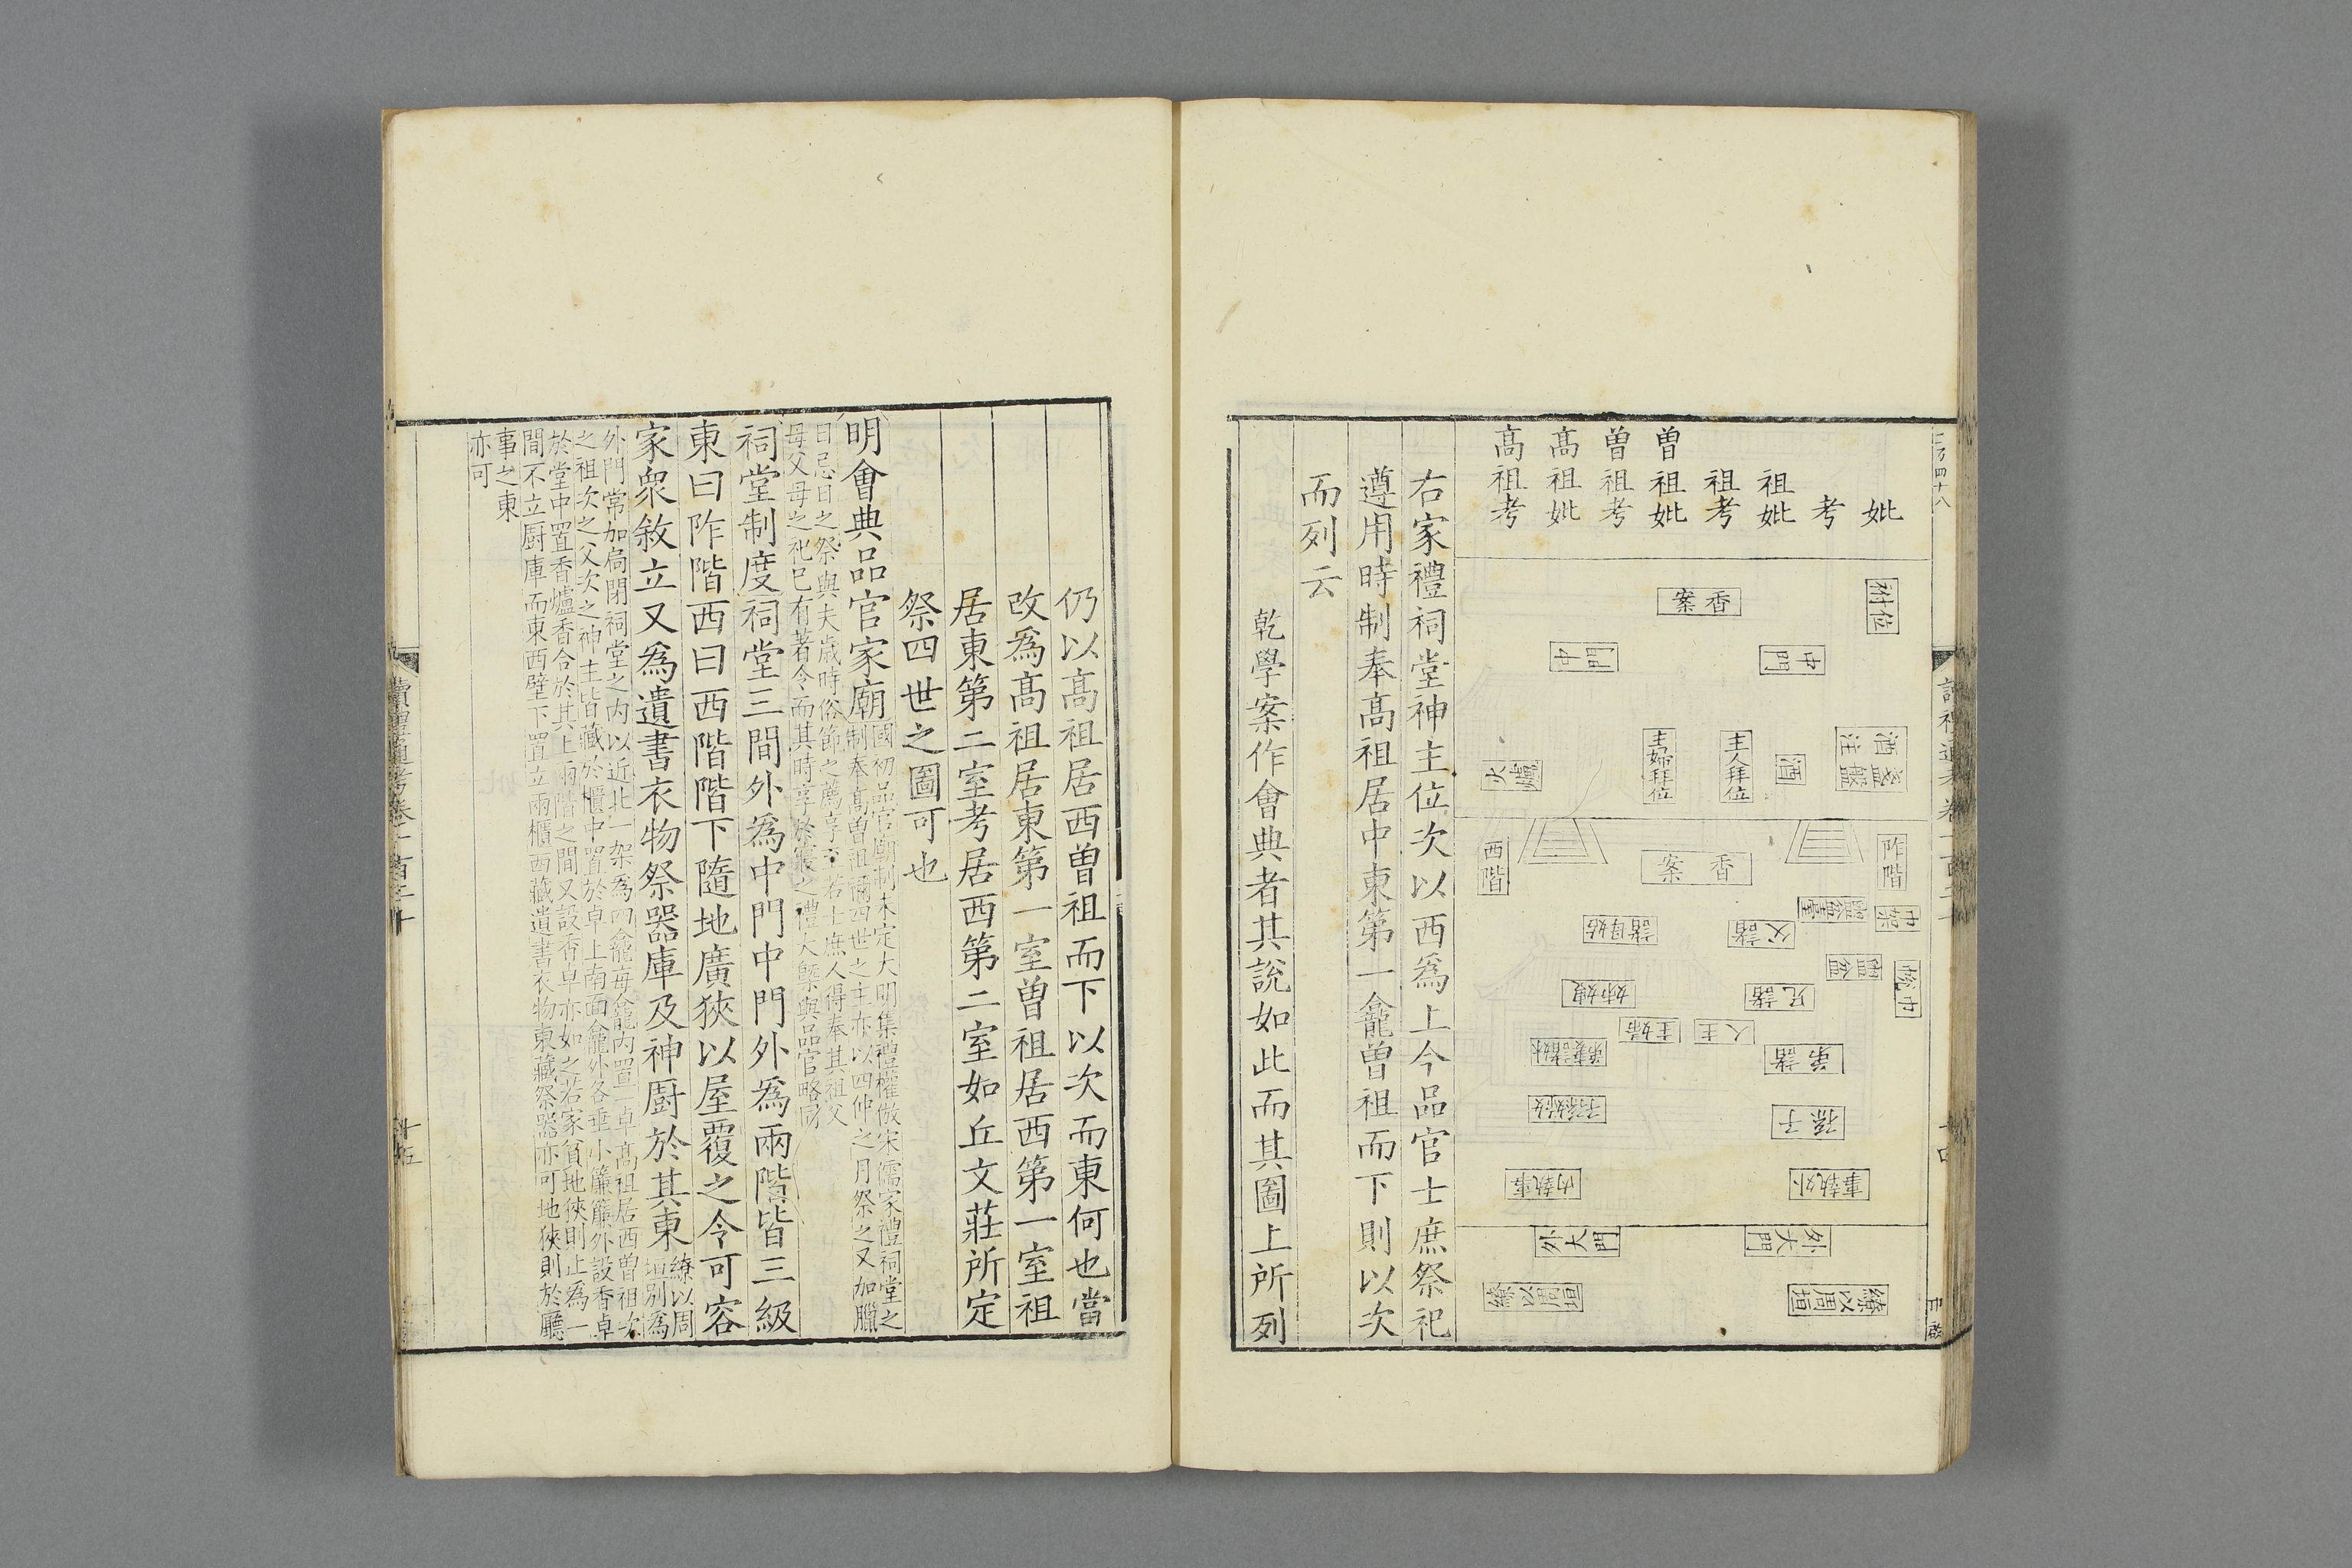 妣
考
祖妣
祖考
曽祖妣
曽祖考
髙祖妣
髙祖考
祔位
香案
中門
中門
酒注盞盤
酒
主人拜位
主婦拜位
火爐
阼階
香案
西階
帨巾
盥盆臺
諸父
諸母姑
帨巾
盥盆
諸兄
姊嫂
主人
主婦
諸弟
子孫
外執事
内執事
外大門
外大門
繚以周垣
繚以周垣
右家禮祠堂神主位次以西爲上今品官士庶祭祀
遵用時制奉髙祖居中東第一龕曽祖而下則以次
而列云
乾學案作會典者其說如此而其圖上所列
仍以髙祖居西曽祖而下以次而東何也當
改爲髙祖居東第一室曽祖居西第一室祖
居東第二室考居西第二室如丘文莊所定
祭四世之圖可也
明會典品官家廟
國初品官廟制未定大明集禮權倣宋儒家禮祠堂之
制奉髙曽祖禰四世之主亦以四仲之月祭之又加臘
日忌日之祭與夫歲時俗節之薦享至若士庶人得奉其祖父
母父母之祀已有著令而其時享於寢之禮大槩與品官略同
祠堂制度祠堂三間外爲中門中門外爲兩階皆三級
東曰阼階西曰西階階下隨地廣狹以屋覆之令可容
家衆敘立又爲遺書衣物祭器庫及神廚於其東
繚以周
垣別為
外門常加扃閉祠堂之内以近北一架為四龕每龕内置一卓髙祖居西曽祖次
之祖次之父次之神主皆藏於櫝中置於卓上南面龕外各垂小簾簾外設香卓
於堂中置香爐香合於其上兩階之間又設香卓亦如之若家貧地狹則止為一
間不立厨庫而東西壁下置立兩櫃西藏遺書衣物東藏祭器亦可地狹則於廳
事之東
亦可
讀禮通考卷一百二十